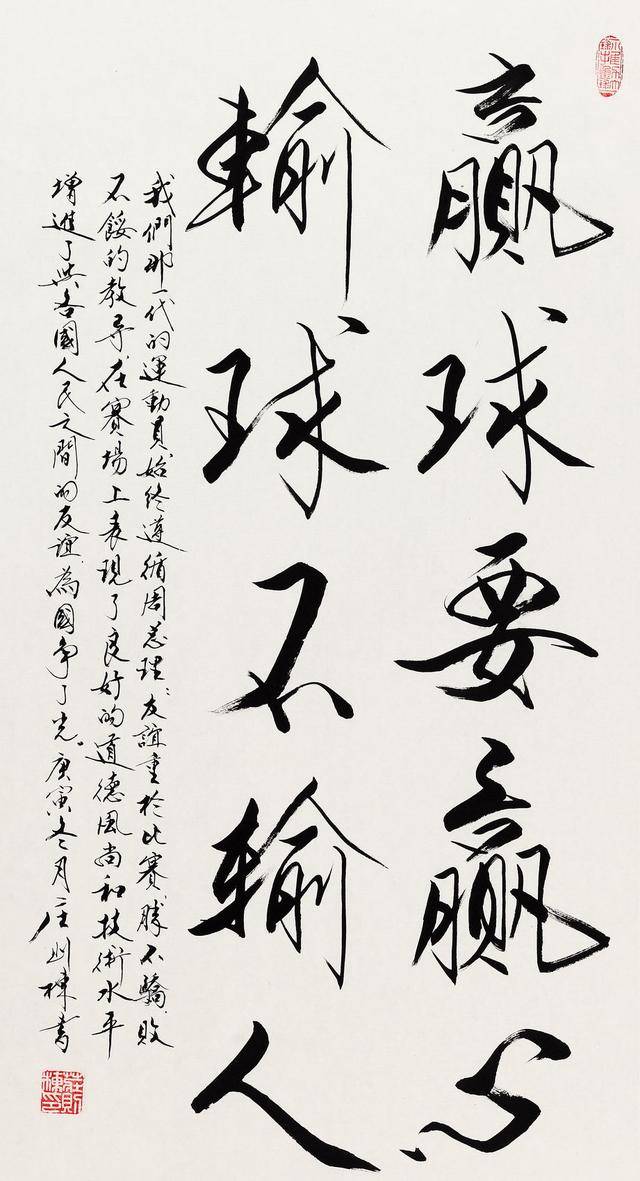 贏球要贏心
輸球不輸人
我們那一代的運動員始終遵循周总理“友誼重於比賽勝不驕敗
不餒的教导在賽場上表現了良好的道德風尚和技術水平
增進了與各國人民之間的友誼為國争了光。庚寅冬月庄则棟書
莊則棟印